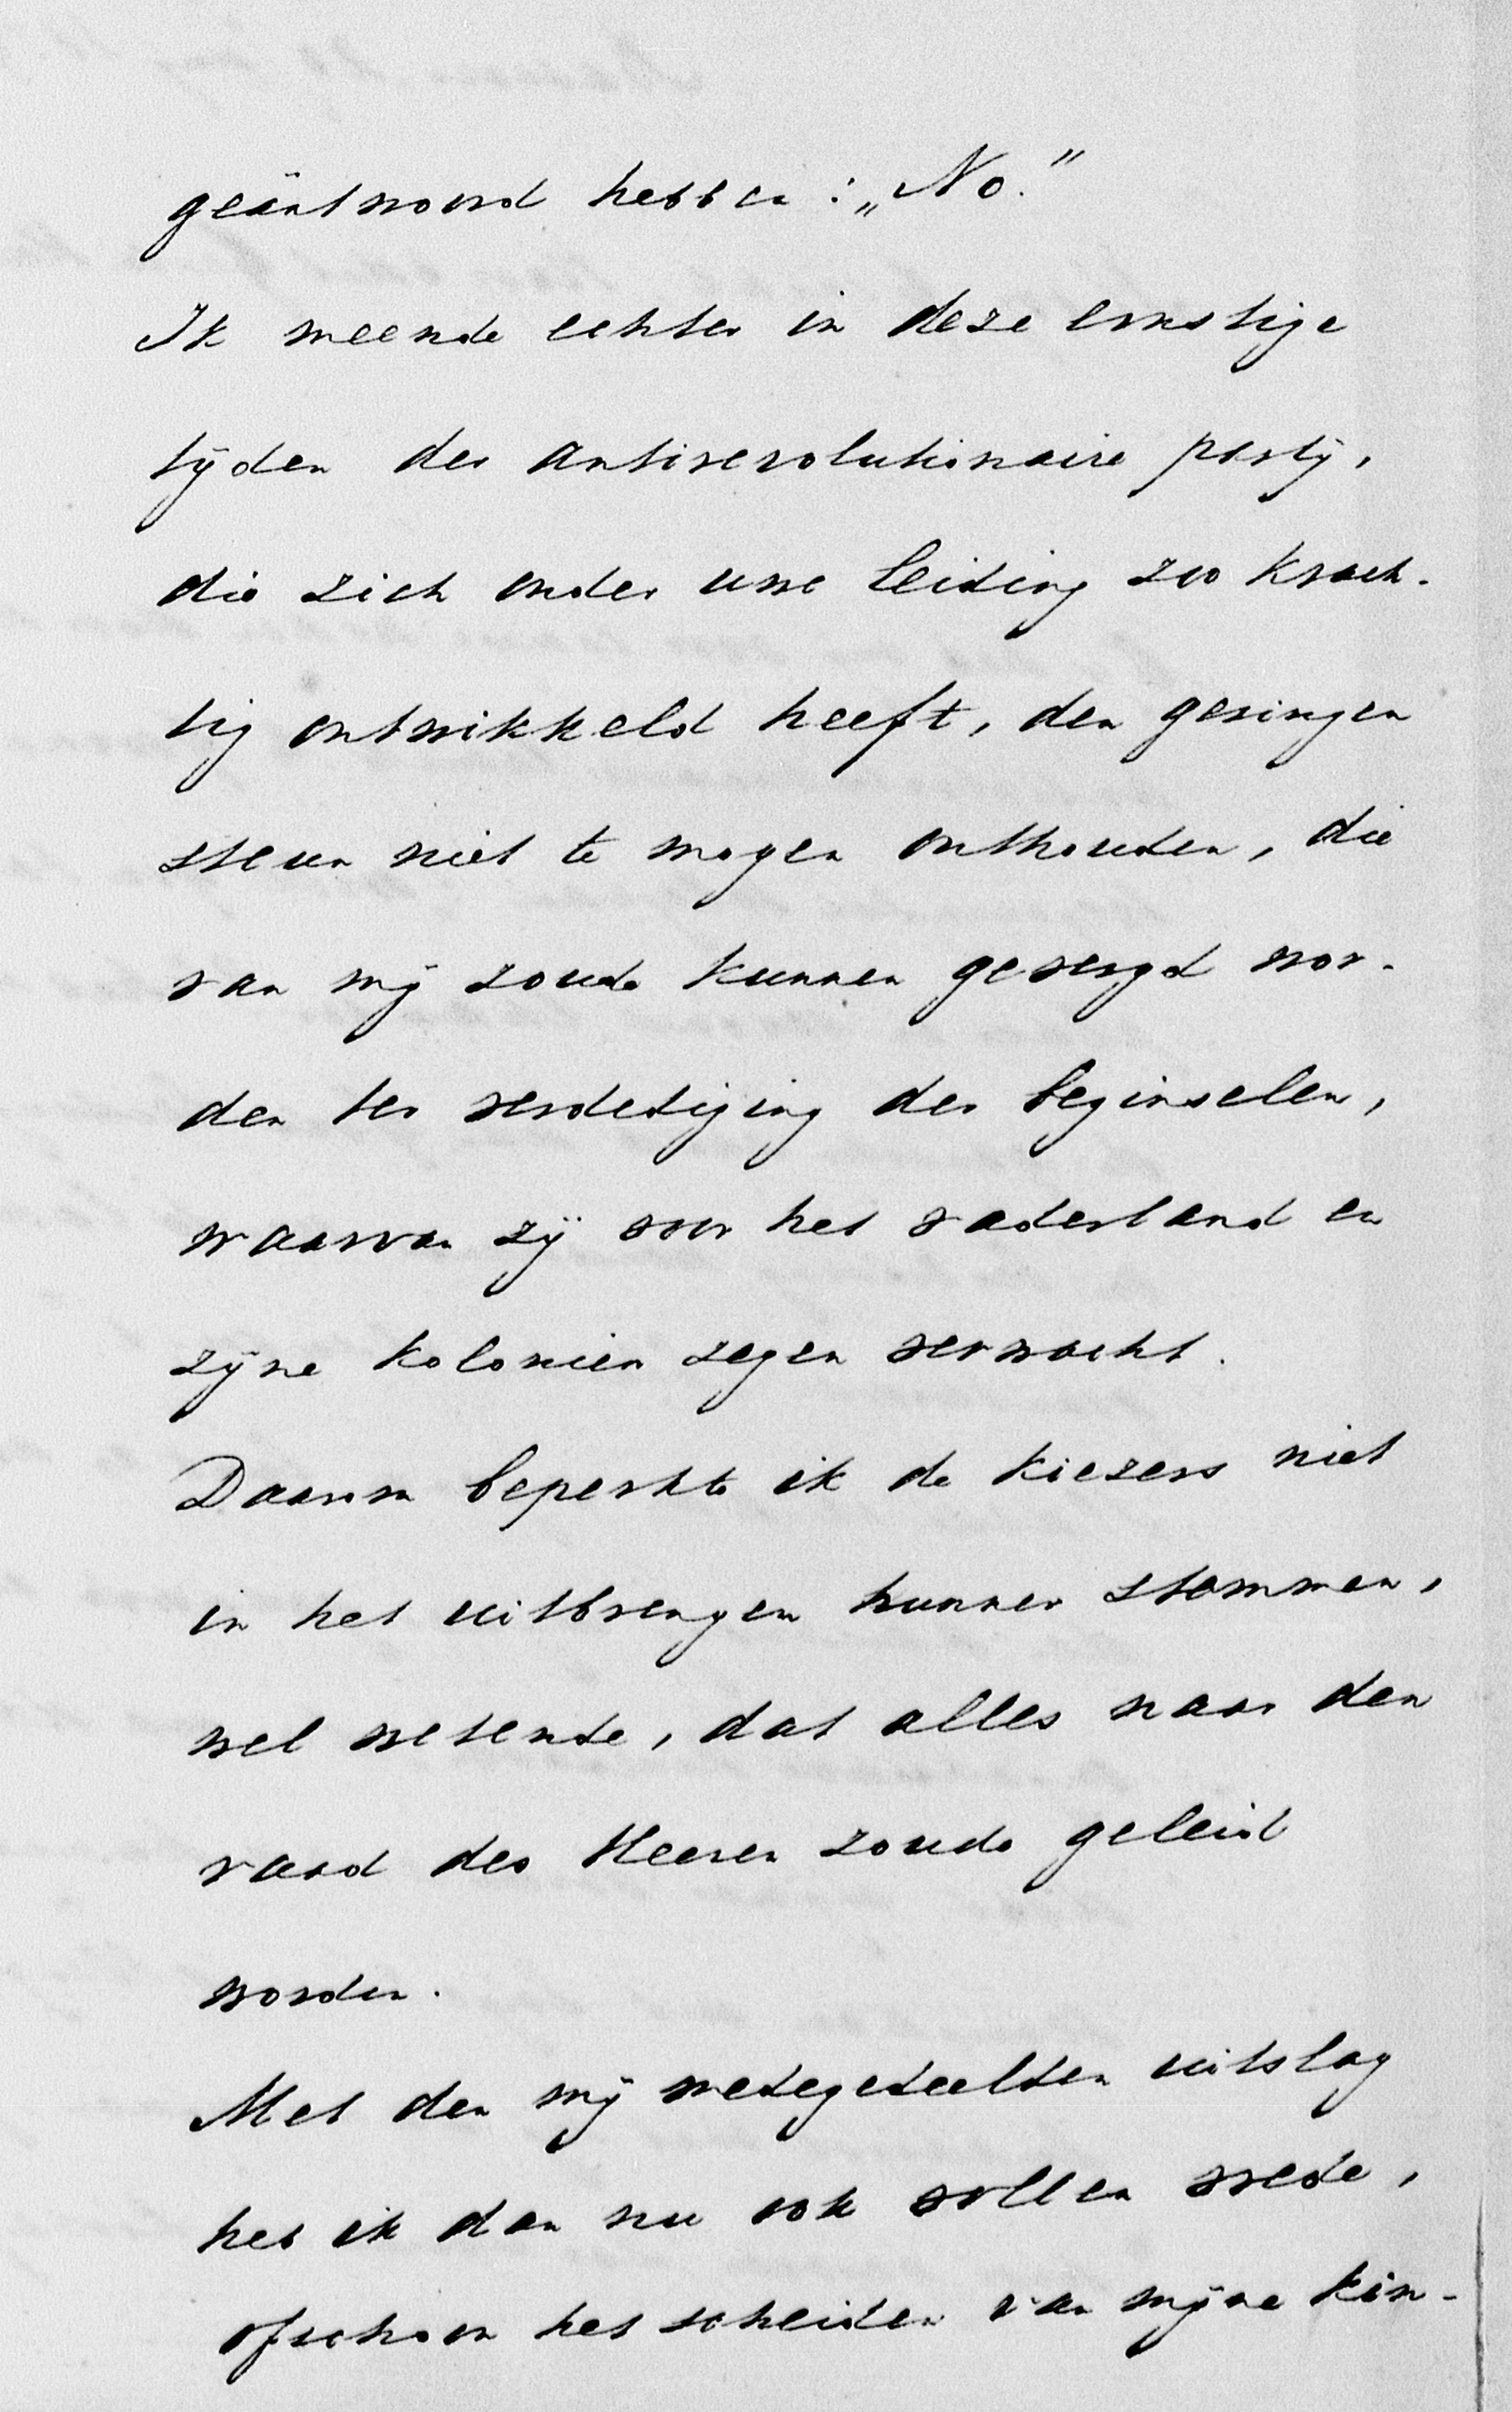 geäntwoord hebben: „No."
Ik meende echter in deze ernstige
tijden der antirevolutionaire partij,
die zich onder uwe leiding zoo krach-
tig ontwikkeld heeft, den geringen
steun niet te mogen onthouden, die
van mij zoude kunnen gevergd wor-
den ter verdediging der beginselen,
waarvan zij voor het vaderland en
zijne kolonien zegen verwacht.
Daarom beperkte ik de kiezers niet
in het uitbrengen hunner stemmen,
wel wetende, dat alles naar den
raad des Heeren zoude geleid
worden.
Met den mij medegedeelden uitslag
heb ik dan nu ook vollen vrede,
ofschoon het scheiden van mijne kin-